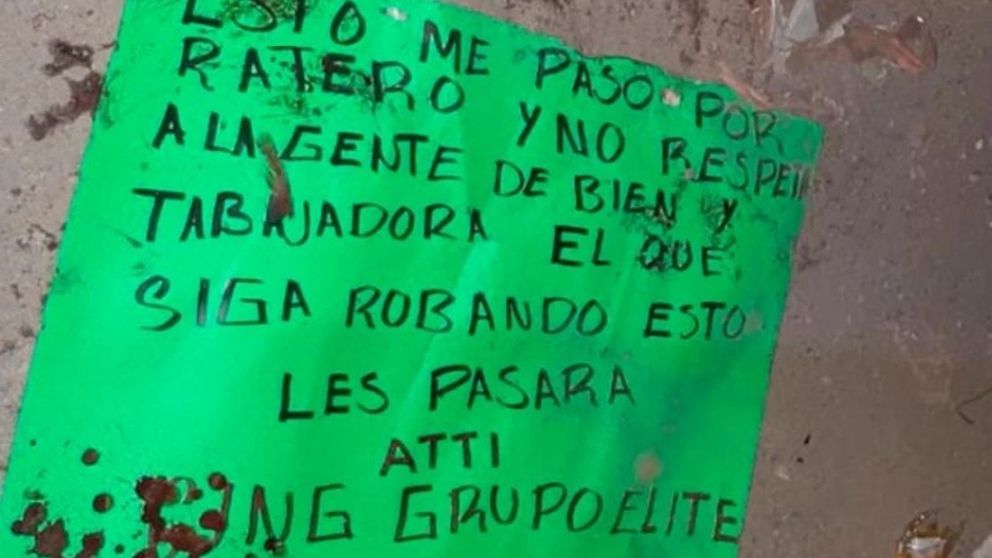 ESTO ME PASO POR
RATERO Y NO RESPETA
A LA GENTE DE BIEN Y
TABAJADORA EL QUE
SIGA ROBANDO ESTO
LES PASARA
ATTI
JNG GRUPO ELITE